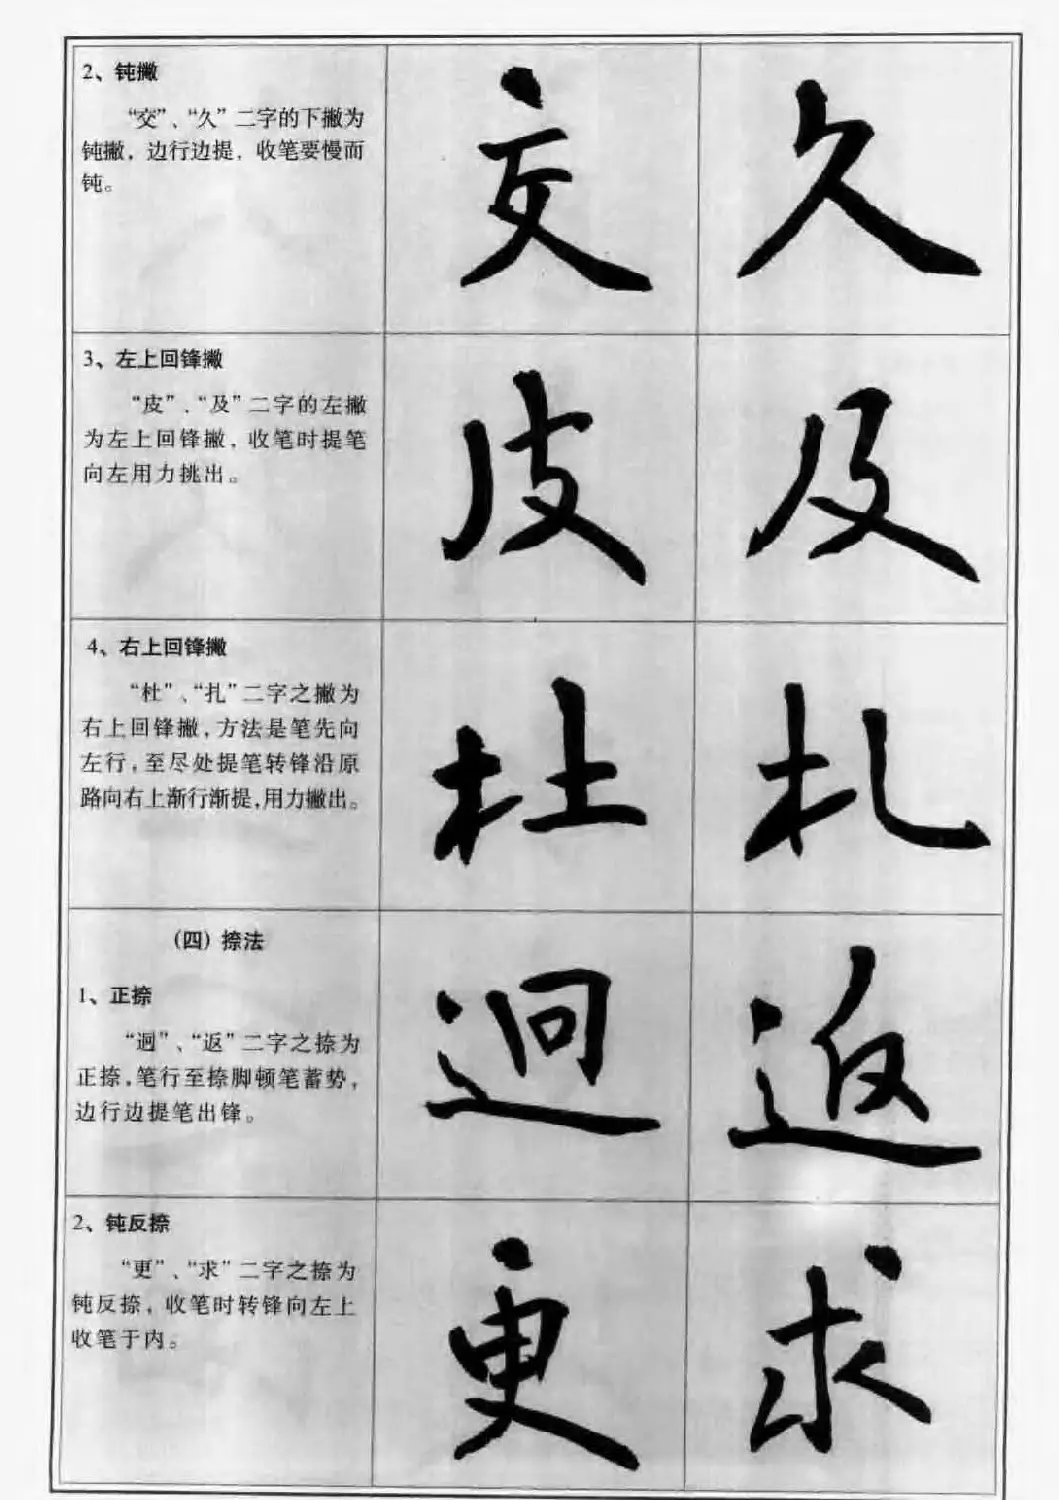 2、钝撇
“交”、“久”二字的下撇为
钝撇，边行边提，收笔要慢而
钝。
交 久
3、左上回锋撇
“皮”、“及”二字的左撇
为左上回锋撇，收笔时提笔
向左用力挑出。
皮 及
4、右上回锋撇
“杜”、“扎”二字之撇为
右上回锋撇，方法是笔先向
左行，至尽处提笔转锋沿原
路向右上渐行渐提，用力撇出。
杜 札
（四）捺法
1、正捺
“迥”、“返”二字之捺为
正捺，笔行至捺脚顿笔蓄势，
边行边提笔出锋。
迥 返
2、钝反捺
“更”、“求”二字之捺为
钝反捺，收笔时转锋向左上
收笔于内。
更 求